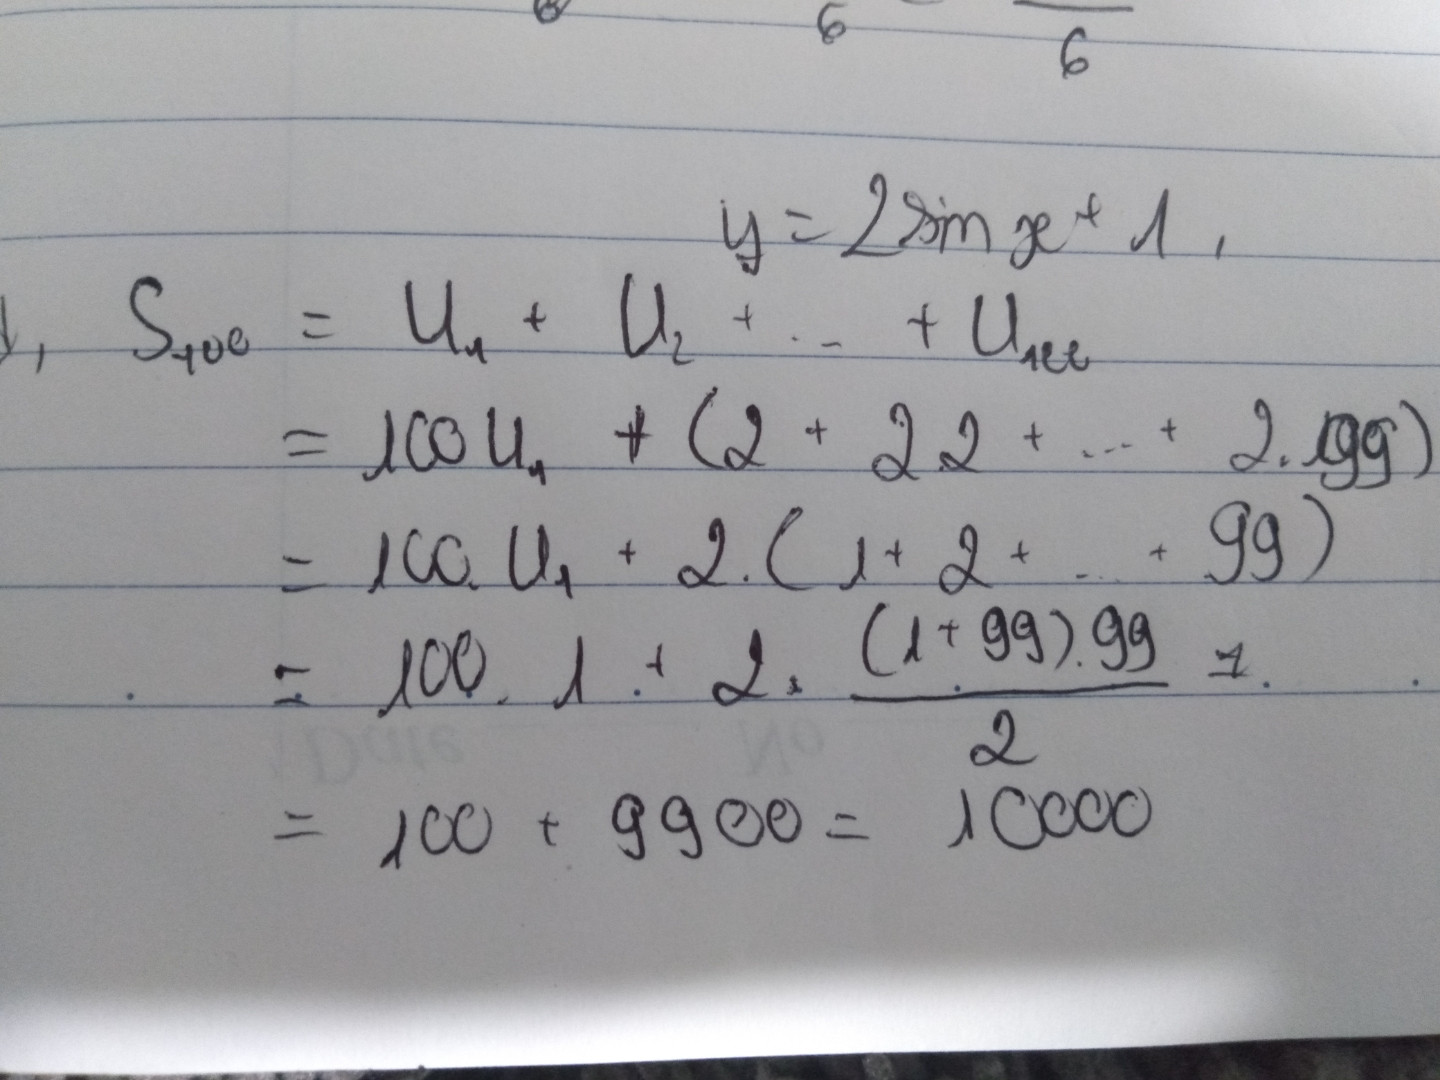 6 6 6
y = 2 sin x + 1,
S₁₀₀ = U₁ + U₂ + ... + U₁₀₀
= 100 U₁ + (2 + 2.2 + ... + 2.99)
= 100. U₁ + 2.(1 + 2 + ... + 99)
= 100. 1 + 2. (1+99).99
2
= 100 + 9900 = 10000
Date No